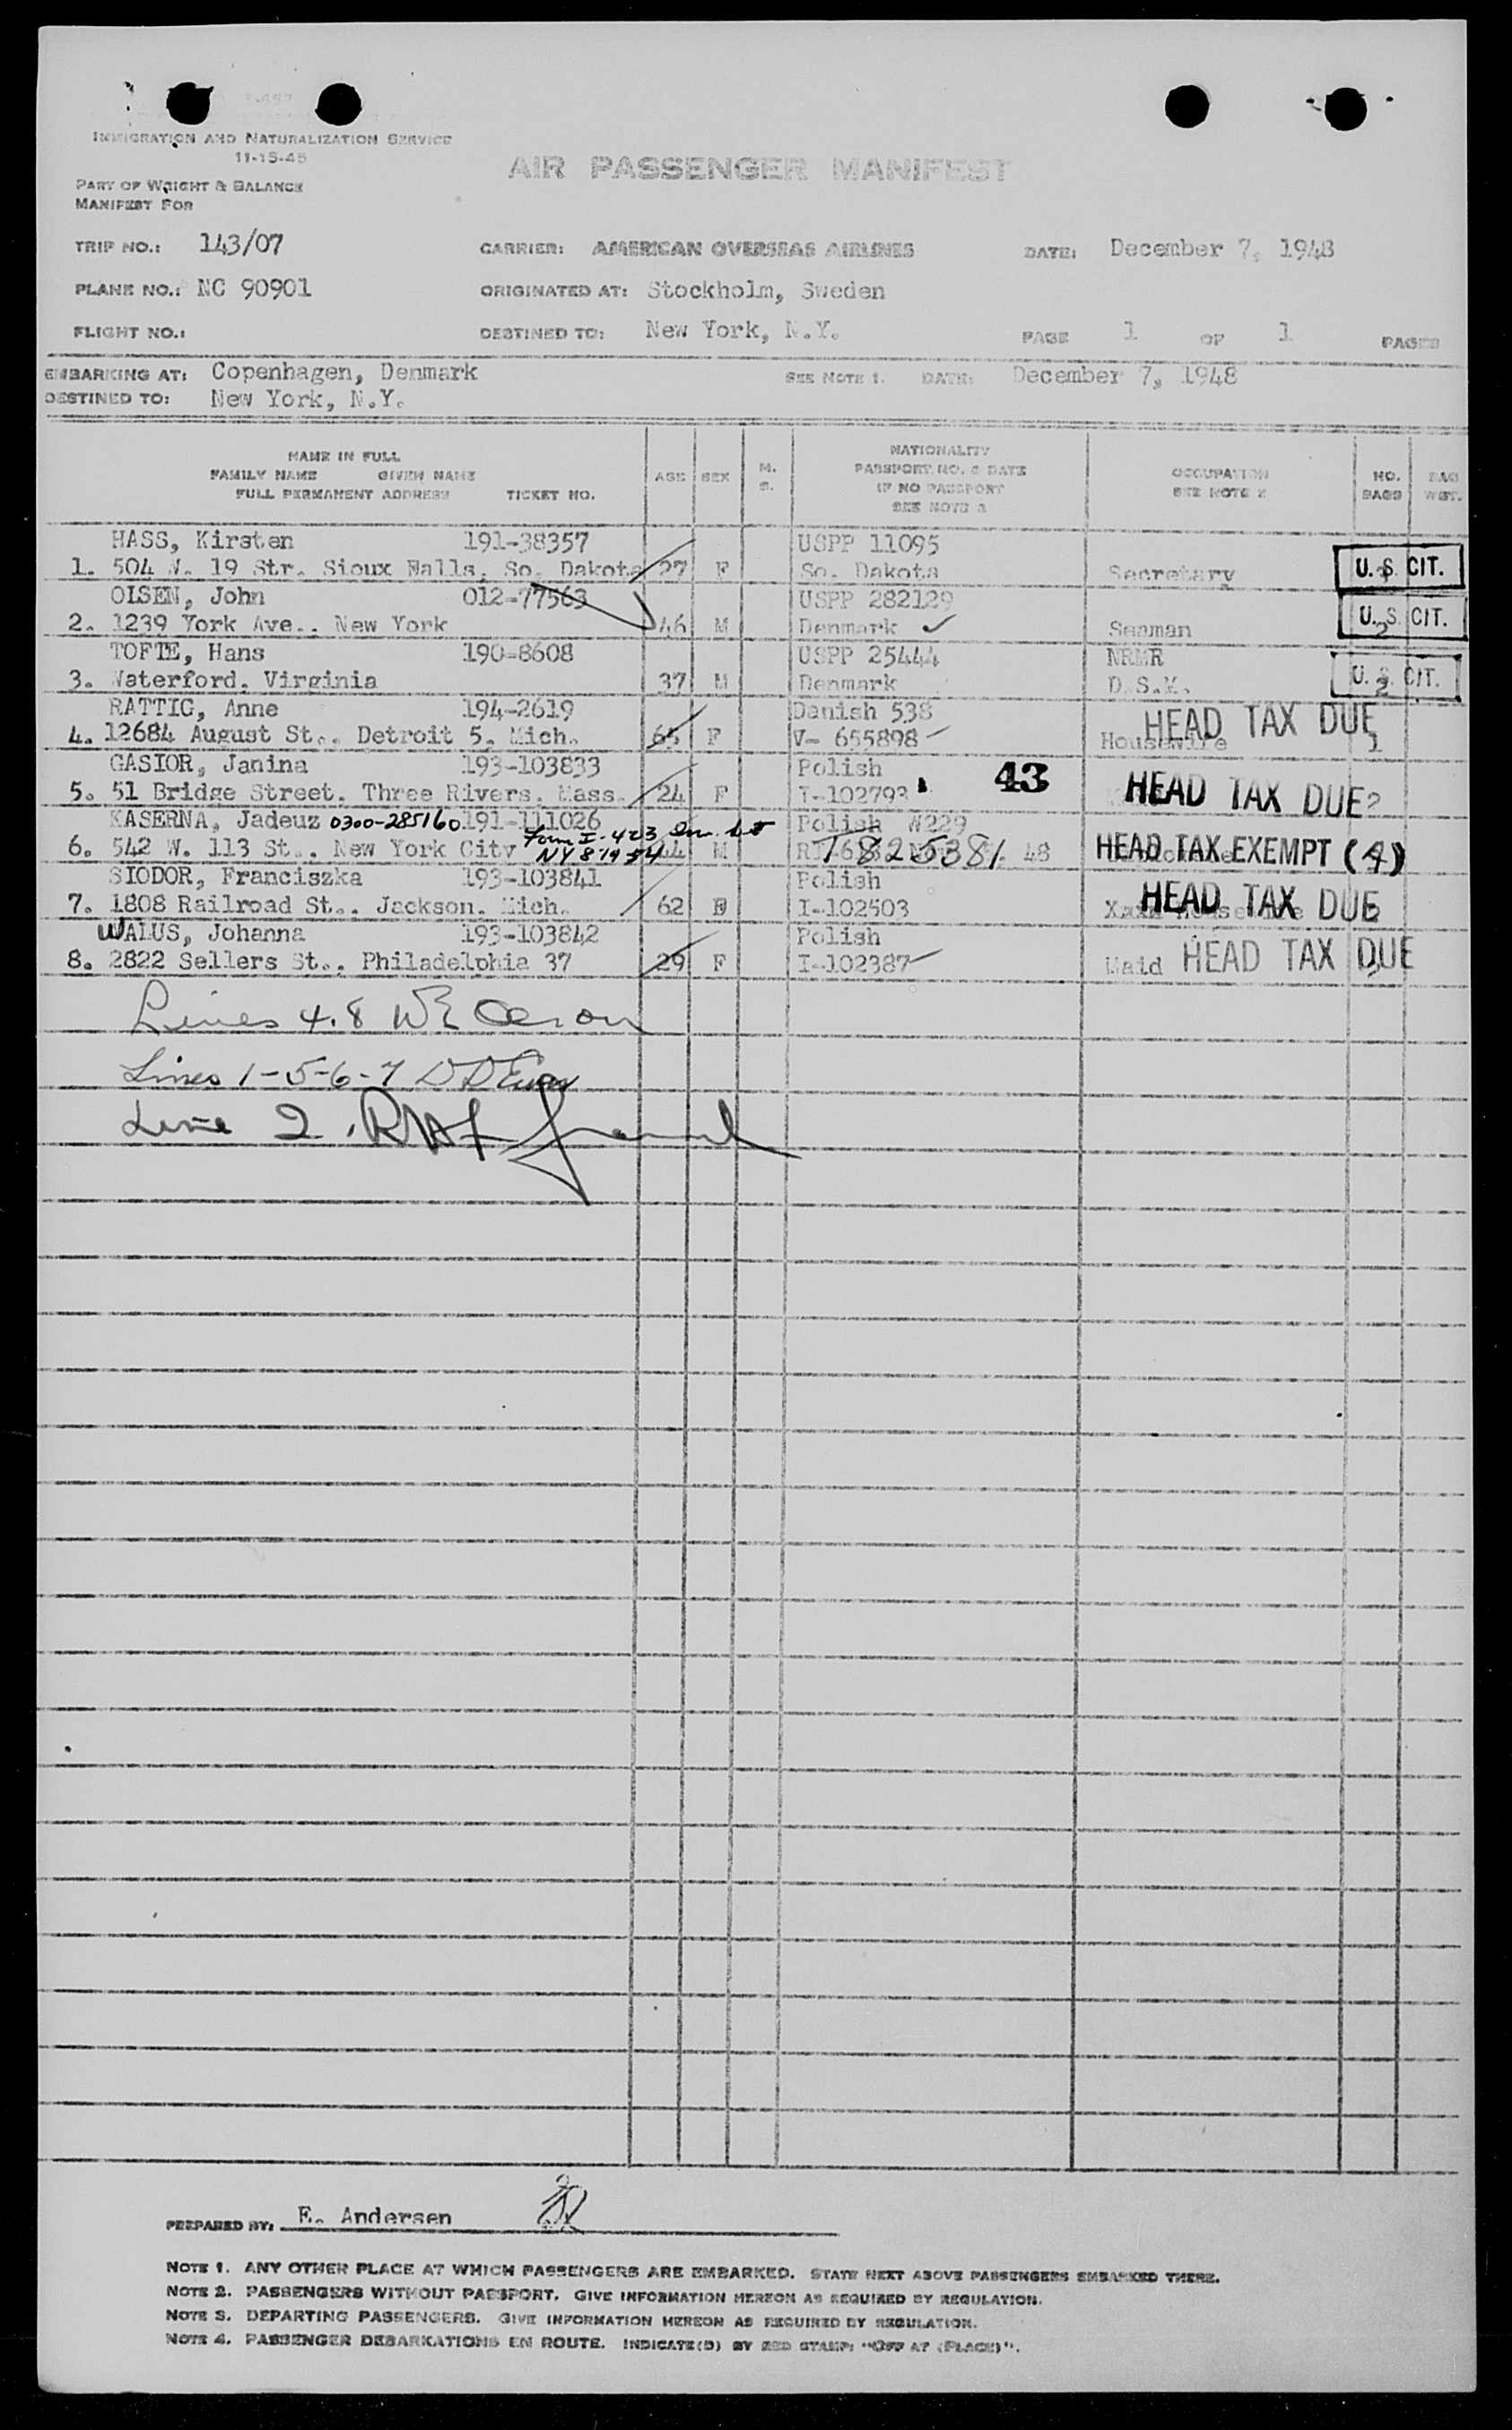 IMMIGRATION AND NATURALIZATION SERVICE
11-15-45
AIR PASSENGER MANIFEST
PART OF WEIGHT & BALANCE
MANIFEST FOR
TRIP NO.: 143/07 CARRIER: AMERICAN OVERSEAS AIRLINES DATE: December 7, 1948
PLANE NO.: NC 90901 ORIGINATED AT: Stockholm, Sweden
FLIGHT NO.: DESTINED TO: New York, N.Y. PAGE 1 OF 1 PAGES
EMBARKING AT: Copenhagen, Denmark SEE NOTE 1. DATE: December 7, 1948
DESTINED TO: New York, N.Y.
NAME IN FULL NATIONALITY
FAMILY NAME GIVEN NAME AGE SEX M. S. PASSPORT NO. & DATE OCCUPATION NO. BAG
FULL PERMANENT ADDRESS TICKET NO. IF NO PASSPORT SEE NOTE 2 BAGS WGT.
SEE NOTE 2
HASS, Kirsten 191-38357 USPP 11095
1. 504 W. 19 Str. Sioux Falls, So. Dakota 27 F So. Dakota Secretary U.S. CIT.
OLSEN, John 012-77563 USPP 282129
2. 1239 York Ave., New York 46 M Denmark ✓ Seaman 2 U.S. CIT.
TOFTE, Hans 190-8608 USPP 25444 NRMR
3. Waterford, Virginia 37 M Denmark D.S.M. 2 U.S. CIT.
RATTIG, Anne 194-2619 Danish 538
4. 12684 August St., Detroit 5, Mich. 65 F V- 655898 Housewife 1 HEAD TAX DUE
GASIOR, Janina 193-103833 Polish
5. 51 Bridge Street, Three Rivers, Mass. 24 F I-102793 43 HEAD TAX DUE 2
KASERNA, Jadeuz 0300-285160 191-111026 Polish W229
Form I-423
6. 542 W. 113 St., New York City M 7825381 48 HEAD TAX EXEMPT (4)
SIODOR, Franciszka 193-103841 Polish
7. 1808 Railroad St., Jackson, Mich. 62 F I-102503 Housewife HEAD TAX DUE
WALUS, Johanna 193-103842 Polish
8. 2822 Sellers St., Philadelphia 37 29 F I-102387 Maid HEAD TAX DUE
Lines 4.8
Lines 1-5-6-7
Line 2.
PREPARED BY: E. Andersen
NOTE 1. ANY OTHER PLACE AT WHICH PASSENGERS ARE EMBARKED. STATE NEXT ABOVE PASSENGERS EMBARKED THERE.
NOTE 2. PASSENGERS WITHOUT PASSPORT. GIVE INFORMATION HEREON AS REQUIRED BY REGULATION.
NOTE 3. DEPARTING PASSENGERS. GIVE INFORMATION HEREON AS REQUIRED BY REGULATION.
NOTE 4. PASSENGER DEBARKATIONS EN ROUTE. INDICATE(D) BY RED STAMP: "OFF AT (PLACE)".